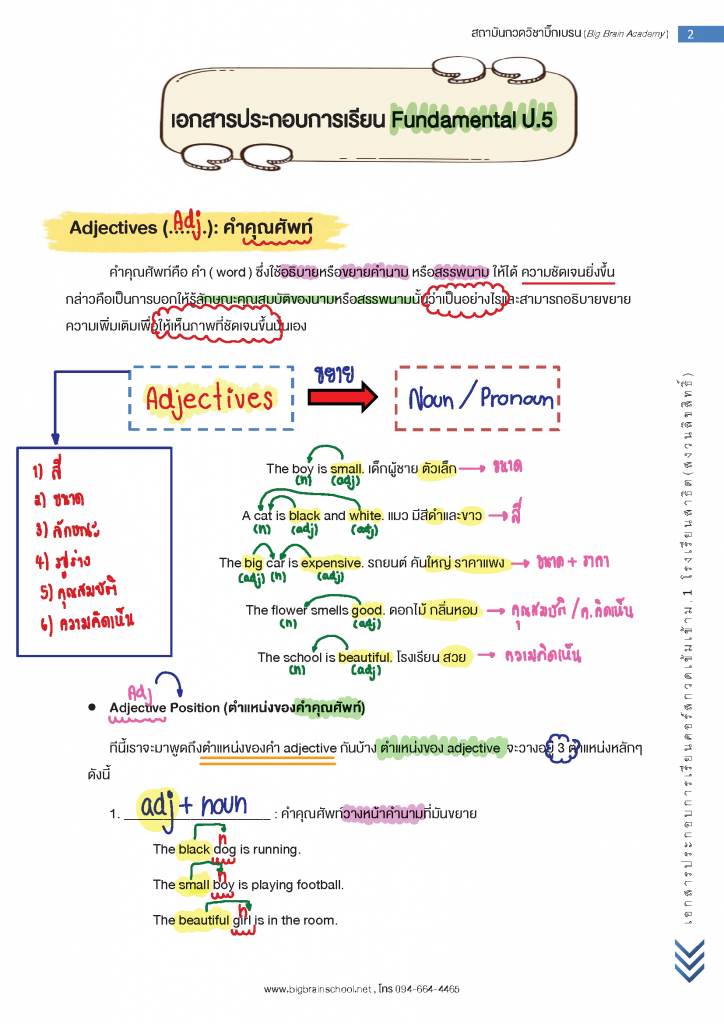 สถาบันกวดวิชาบิ๊กเบรน (Big Brain Academy) 2
เอกสารประกอบการเรียน Fundamental ป.5
Adjectives (..Adj...): คำคุณศัพท์
คำคุณศัพท์คือ คำ ( word ) ซึ่งใช้อธิบายหรือขยายคำนาม หรือสรรพนาม ให้ได้ ความชัดเจนยิ่งขึ้น
กล่าวคือเป็นการบอกให้รู้ลักษณะคุณสมบัติของนามหรือสรรพนามนั้นว่าเป็นอย่างไรและสามารถอธิบายขยาย
ความเพิ่มเติมเพื่อให้เห็นภาพที่ชัดเจนขึ้นนั่นเอง
Adjectives ขยาย Noun / Pronoun
1) สี
2) ขนาด
3) ลักษณะ
4) รูปร่าง
5) คุณสมบัติ
6) ความคิดเห็น
The boy is small. เด็กผู้ชาย ตัวเล็ก ขนาด
(n) (adj)
A cat is black and white. แมว มีสีดำและขาว สี
(n) (adj) (adj)
The big car is expensive. รถยนต์ คันใหญ่ ราคาแพง ขนาด + ราคา
(adj) (n) (adj)
The flower smells good. ดอกไม้ กลิ่นหอม คุณสมบัติ / ค.คิดเห็น
(n) (adj)
The school is beautiful. โรงเรียน สวย ความคิดเห็น
(n) (adj)
Adj
• Adjective Position (ตำแหน่งของคำคุณศัพท์)
ทีนี้เราจะมาพูดถึงตำแหน่งของคำ adjective กันบ้าง ตำแหน่งของ adjective จะวางอยู่ 3 ตำแหน่งหลักๆ
ดังนี้
1. adj + noun : คำคุณศัพท์วางหน้าคำนามที่มันขยาย
n
The black dog is running.
n
The small boy is playing football.
n
The beautiful girl is in the room.
เอกสารประกอบการเรียนคอร์สกวดเข้มเข้าม.1 โรงเรียนสาธิต(สงวนลิขสิทธิ์)
www.bigbrainschool.net , โทร 094-664-4465